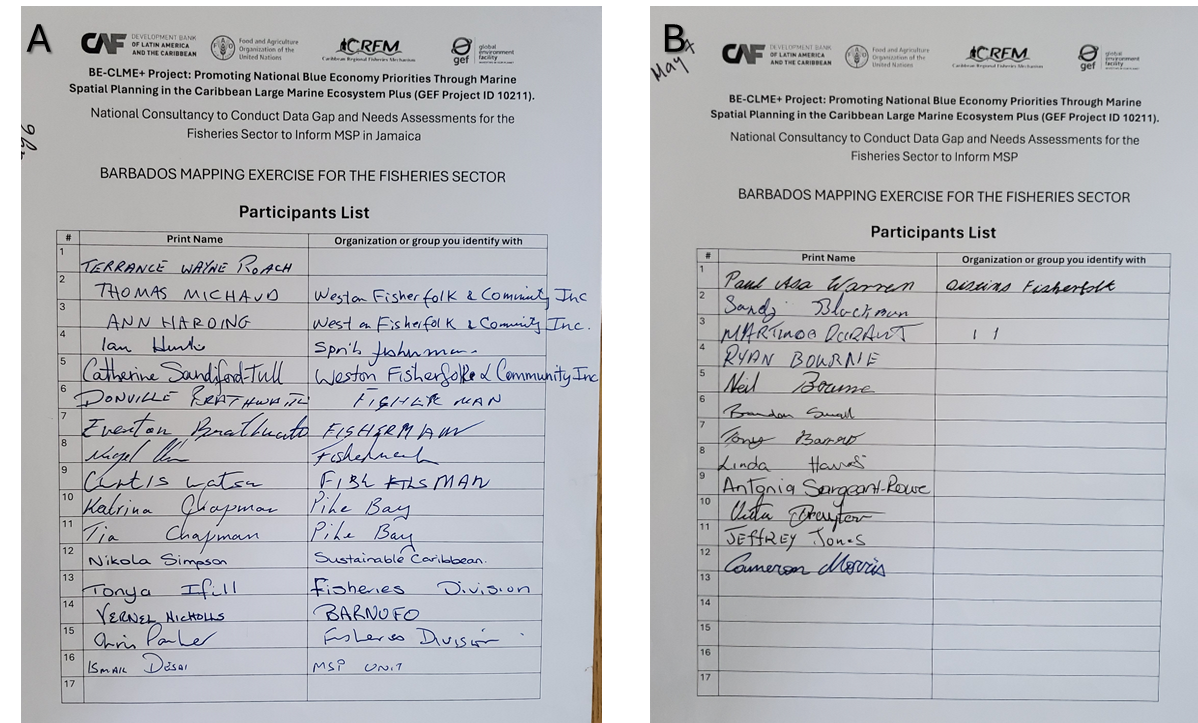 A
CAF DEVELOPMENT BANK
OF LATIN AMERICA
AND THE CARIBBEAN
Food and Agriculture
Organization of the
United Nations
CRFM
Caribbean Regional Fisheries Mechanism
gef global
environment
facility
BE-CLME+ Project: Promoting National Blue Economy Priorities Through Marine
Spatial Planning in the Caribbean Large Marine Ecosystem Plus (GEF Project ID 10211).
National Consultancy to Conduct Data Gap and Needs Assessments for the
Fisheries Sector to Inform MSP in Jamaica
BARBADOS MAPPING EXERCISE FOR THE FISHERIES SECTOR
Participants List
# Print Name Organization or group you identify with
1 TERRANCE WAYNE ROACH
2 THOMAS MICHAUD Weston Fisherfolk & Community Inc
3 ANN HARDING Weston Fisherfolk & Community Inc.
4 Ian fisherman
5 Catherine Sandiford-Tull Weston Fisherfolke & Community Inc
6 DONVILLE BRATHWAITE FISHERMAN
7 Everton FISHERMAN
8 Nigel
9 Curtis Watson
10 Katrina Chapman Pike Bay
11 Tia Chapman Pike Bay
12 Nikola Simpson Sustainable Caribbean.
13 Tonya Ifill Fisheries Division
14 VERNEL NICHOLLS BARNUFO
15 Chris Parker Fisheries Division
16 ISMAIL DESAI MSP UNIT
17
B
May
CAF DEVELOPMENT BANK
OF LATIN AMERICA
AND THE CARIBBEAN
Food and Agriculture
Organization of the
United Nations
CRFM
Caribbean Regional Fisheries Mechanism
gef global
environment
facility
BE-CLME+ Project: Promoting National Blue Economy Priorities Through Marine
Spatial Planning in the Caribbean Large Marine Ecosystem Plus (GEF Project ID 10211).
National Consultancy to Conduct Data Gap and Needs Assessments for the
Fisheries Sector to Inform MSP
BARBADOS MAPPING EXERCISE FOR THE FISHERIES SECTOR
Participants List
# Print Name Organization or group you identify with
1 Paul Asa Warren Oistins Fisherfolk
2 Sandy Blackman
3 DURANT 11
4 RYAN BOURNE
5 Neil Bourne
6 Brandon Small
7 Tony
8 Linda Harris
9 Antonia Sargeant-Rowe
10 Drayton
11 JEFFREY JONES
12 Cameron Morris
13
14
15
16
17